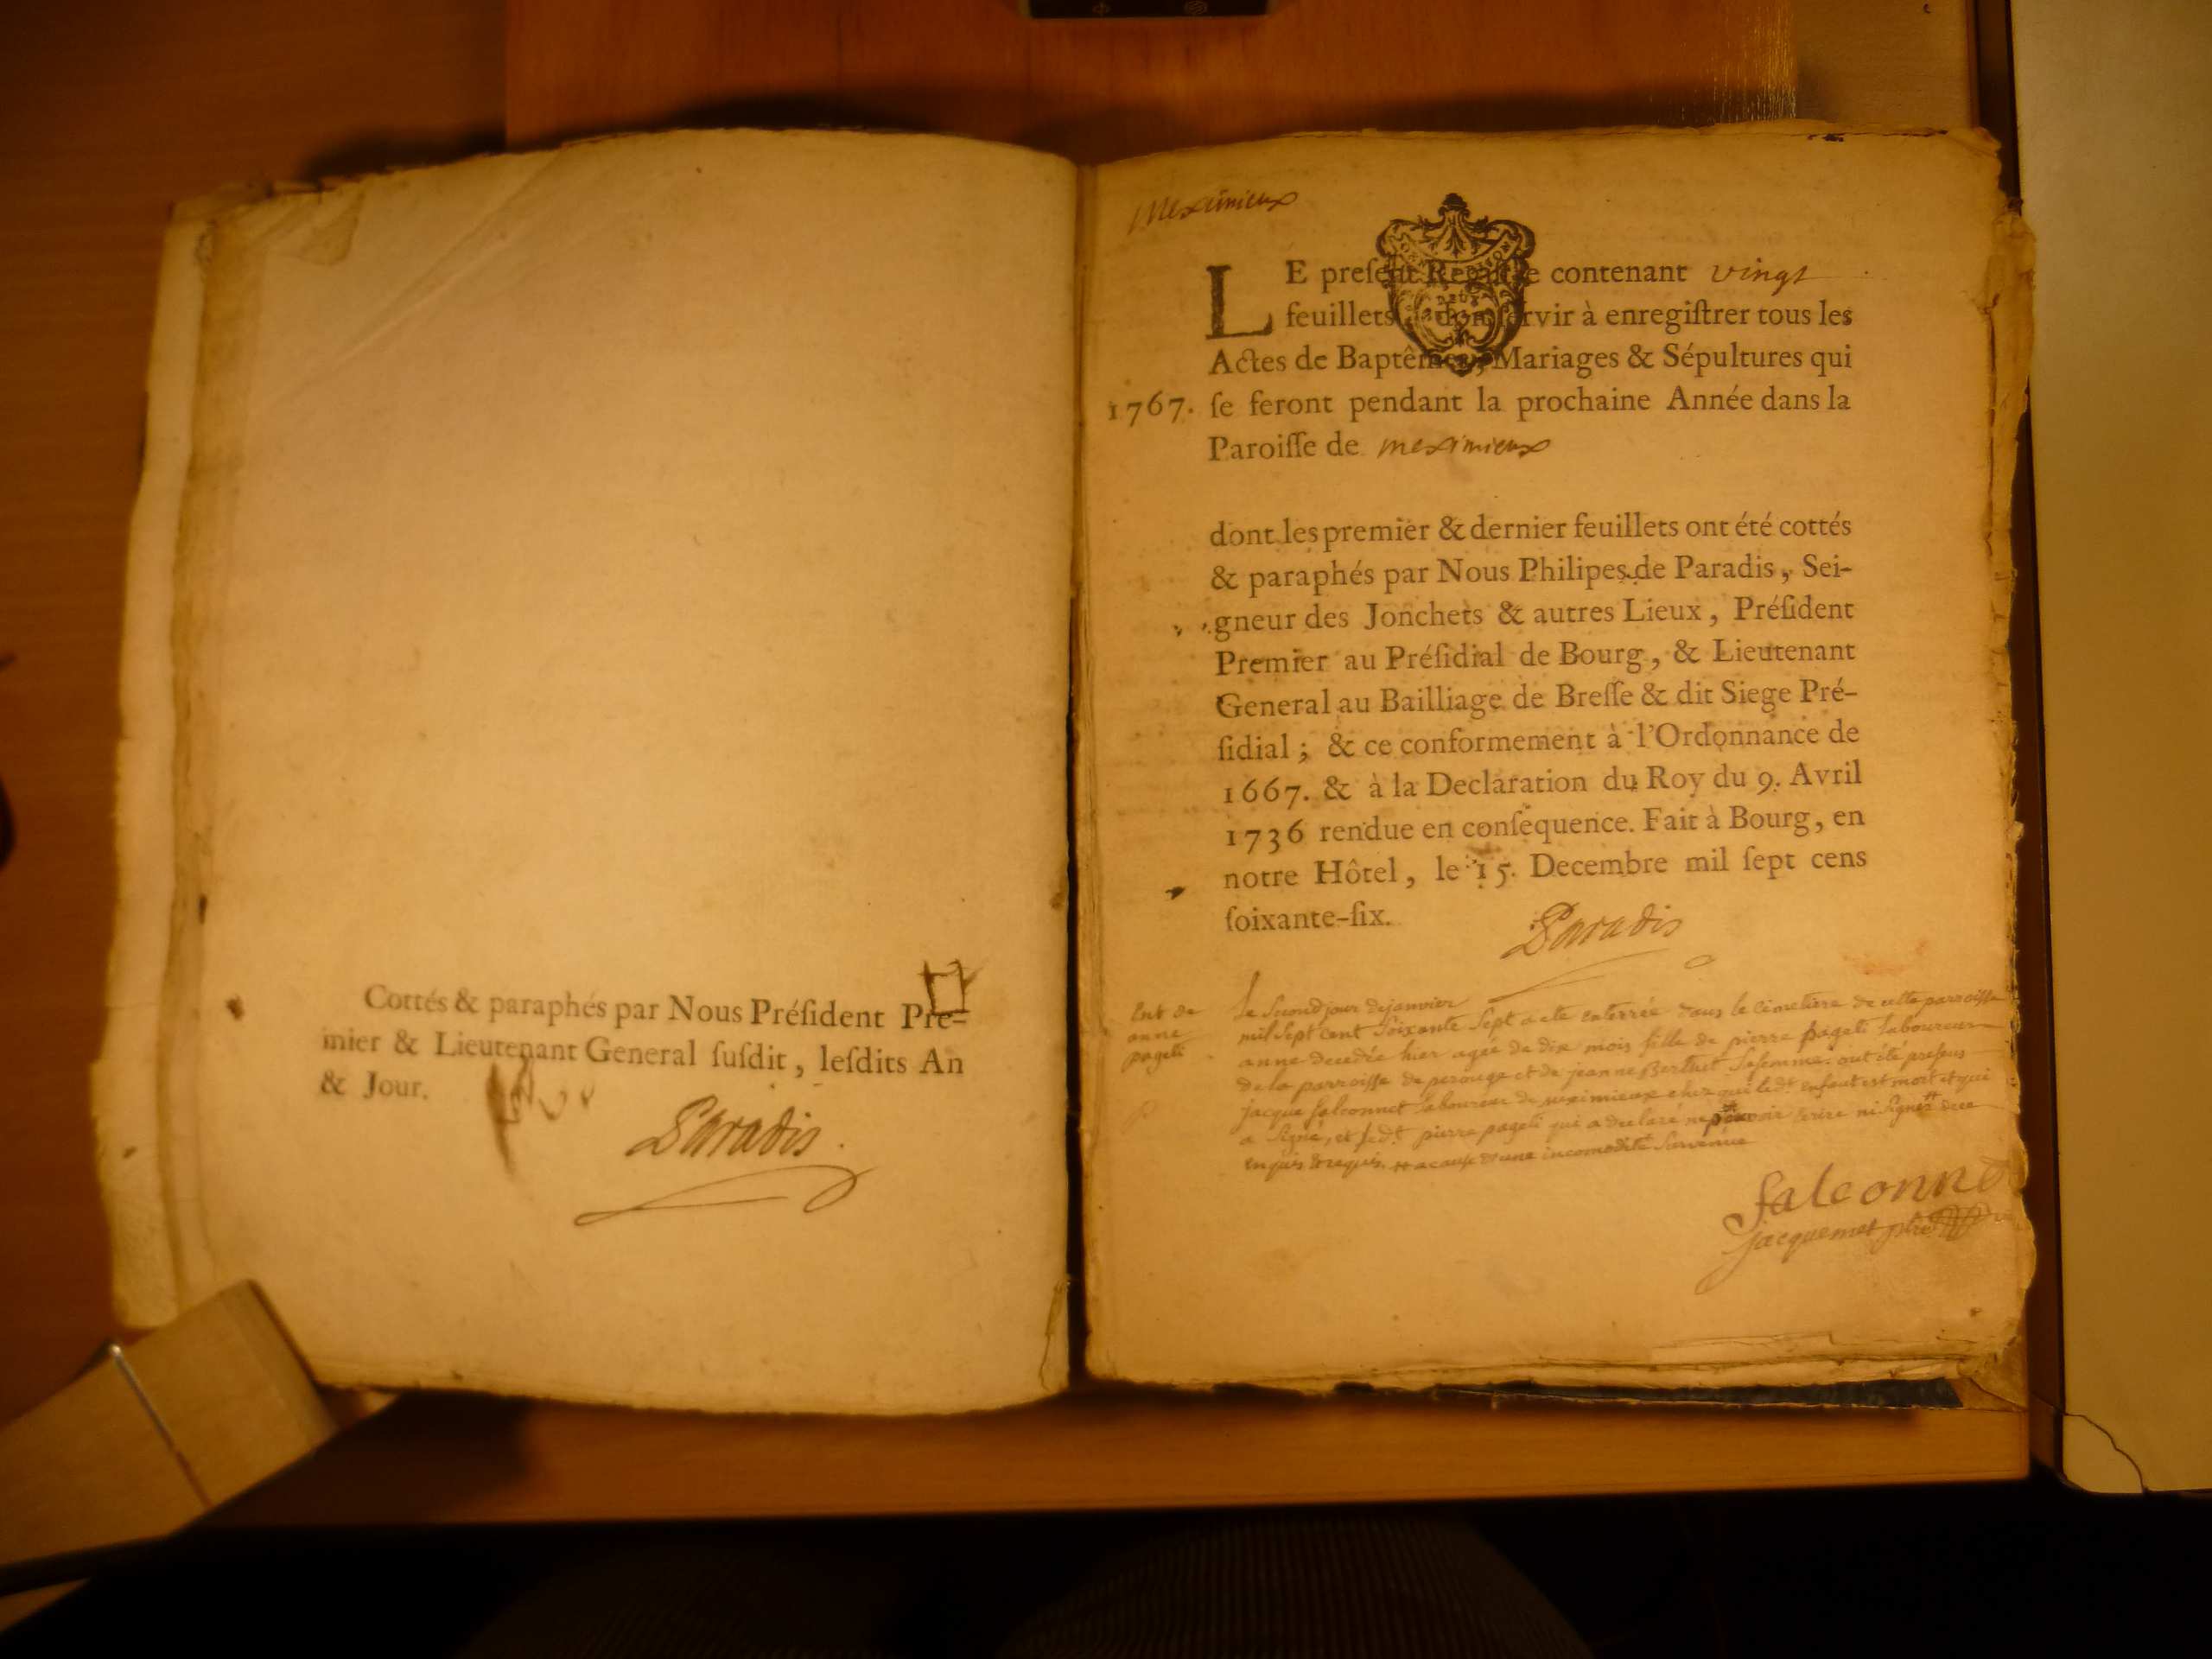 Cottés & paraphés par Nous Préſident Pre-
mier & Lieutenant General ſuſdit, leſdits An
& Jour.
Paradis
Meximieux
LE preſent Regiſtre contenant vingt
feuillets doit ſervir à enregiſtrer tous les
Actes de Baptêmes, Mariages & Sépultures qui
1767. ſe feront pendant la prochaine Année dans la
Paroiſſe de meximieux
dont les premier & dernier feuillets ont été cottés
& paraphés par Nous Philipes de Paradis, Sei-
gneur des Jonchets & autres Lieux, Préſident
Premier au Préſidial de Bourg, & Lieutenant
General au Bailliage de Breſſe & dit Siege Pré-
ſidial; & ce conformement à l'Ordonnance de
1667. & à la Declaration du Roy du 9. Avril
1736 rendue en conſéquence. Fait à Bourg, en
notre Hôtel, le 15. Decembre mil ſept cens
ſoixante-ſix.
Paradis
Ent de
anne
pageti
Le Second jour de janvier
mil Sept cent Soixante Sept a ete enterrée dans le Cimetiere de cette parroisse
anne decedée hier agée de dix mois fille de pierre pageti laboureur
de la parroisse de perouge et de jeanne Berthet Sa femme. ont été presens
jacque falconnet laboureur de meximieux chez qui led.t enfant est mort et qui
a Signé, et led.t pierre pageti qui a declaré ne pouvoir ecrire ni Signer de ce
enquis & requis. a cause d'une incomodité Survenüe
falconnet
jacquemet ptre